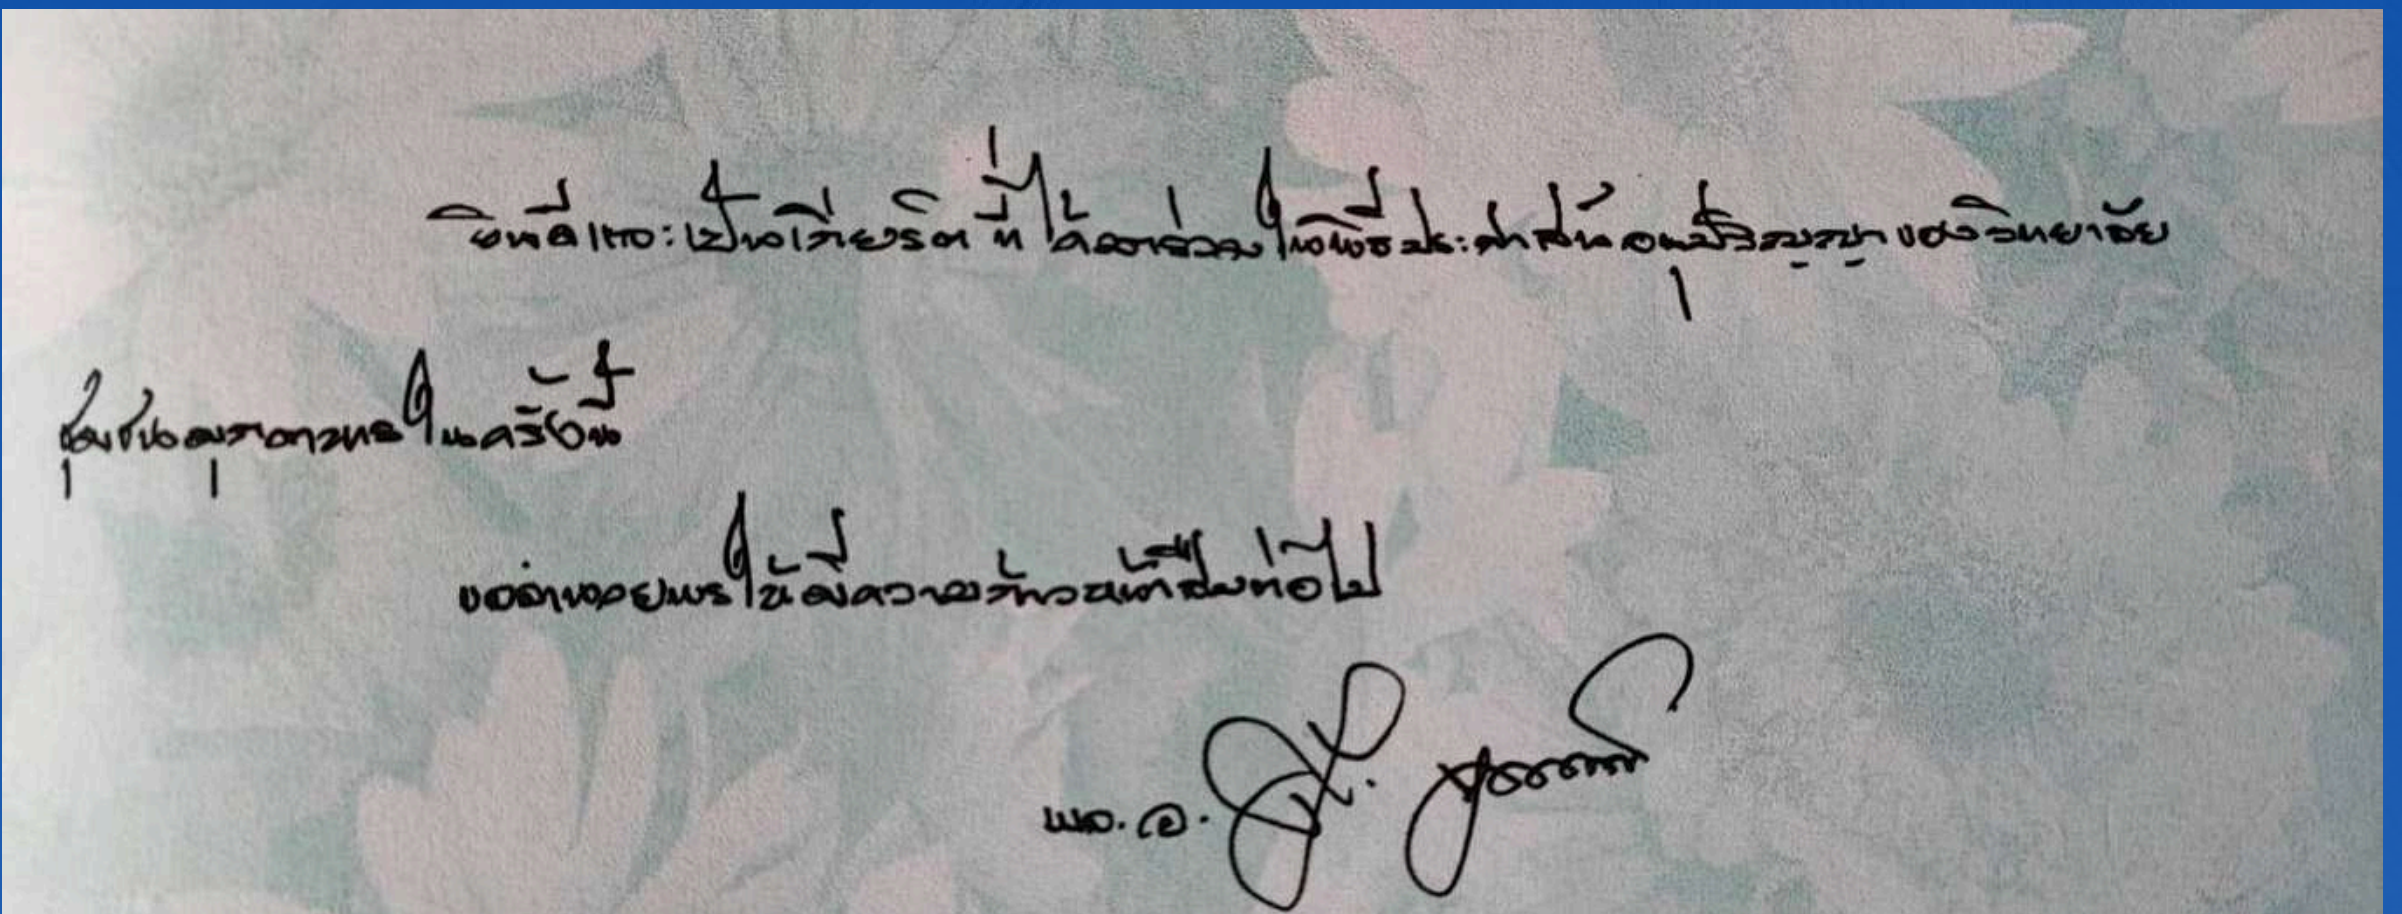 ยินดีและเป็นเกียรติ ที่ได้มาร่วมในพิธีประสาทอนุปริญญาของวิทยาลัย
ชุมชนมุกดาหารในครั้งนี้
ขออำนวยพรให้มีความก้าวหน้าสืบต่อไป
พล.อ.